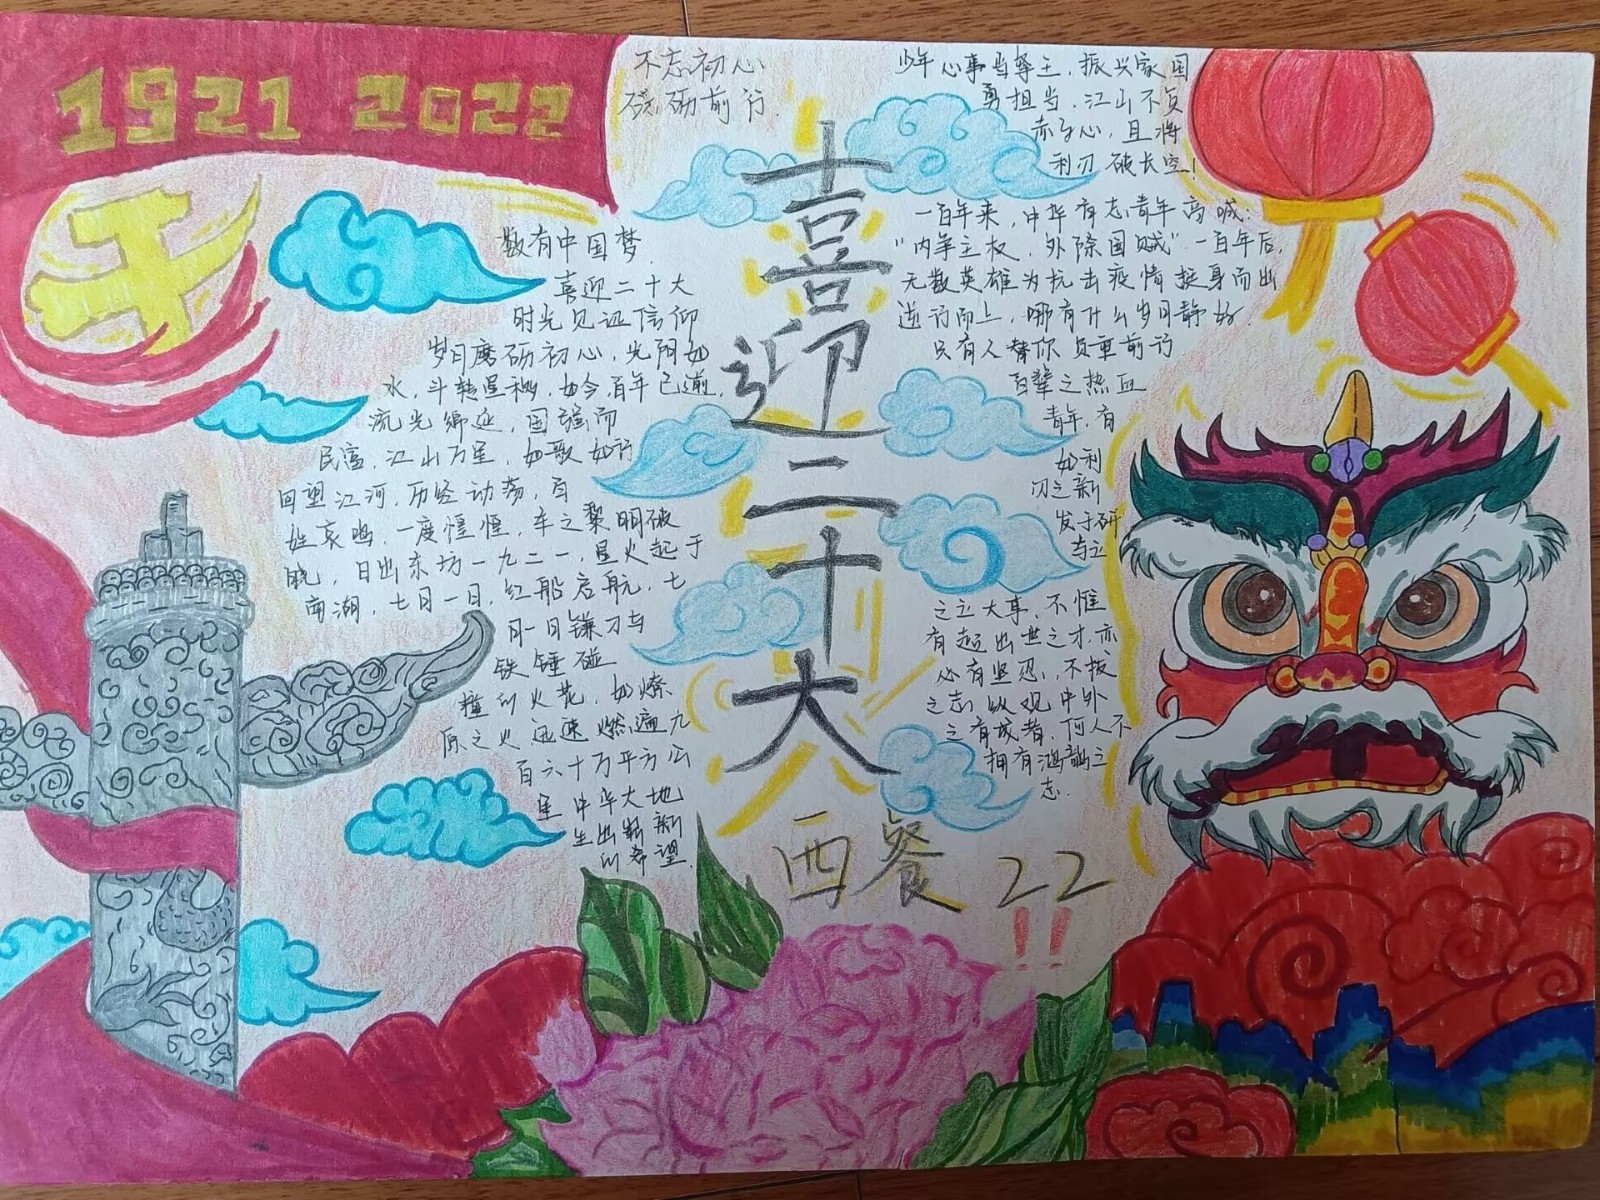 1921 2022
不忘初心
砥砺前行
喜迎二十大
西餐22
!!
敬有中国梦
喜迎二十大
时光见证信仰
岁月磨砺初心,光阴如
水,斗转星移,如今,百年已逝,
流光绵延,国强而
民富,江山万里,如歌如行
回望江河,历经动荡,百
姓哀鸣,一度惶惶,幸之黎明破
晓,日出东方一九二一,星火起于
南湖,七月一日,红船启航,七
月一日镰刀与
铁锤碰
撞的火花,如燎
原之火迅速燃遍九
百六十万平方公
里中华大地
生出崭新
的希望
少年心事当擎云,振兴家国
勇担当,江山不负
赤子心,且将
利刃破长空!
一百年来,中华有志青年高喊:
“内争主权,外除国贼”一百年后,
无数英雄为抗击疫情挺身而出
逆行而上,哪有什么岁月静好
只有人替你负重前行
百辈之热血
青年,有
如利
刃之新
发于研
古之
之立大事,不惟
有超出世之才,亦
必有坚忍,不拔
之志纵观中外
之有成者,何人不
拥有鸿鹄之
志.